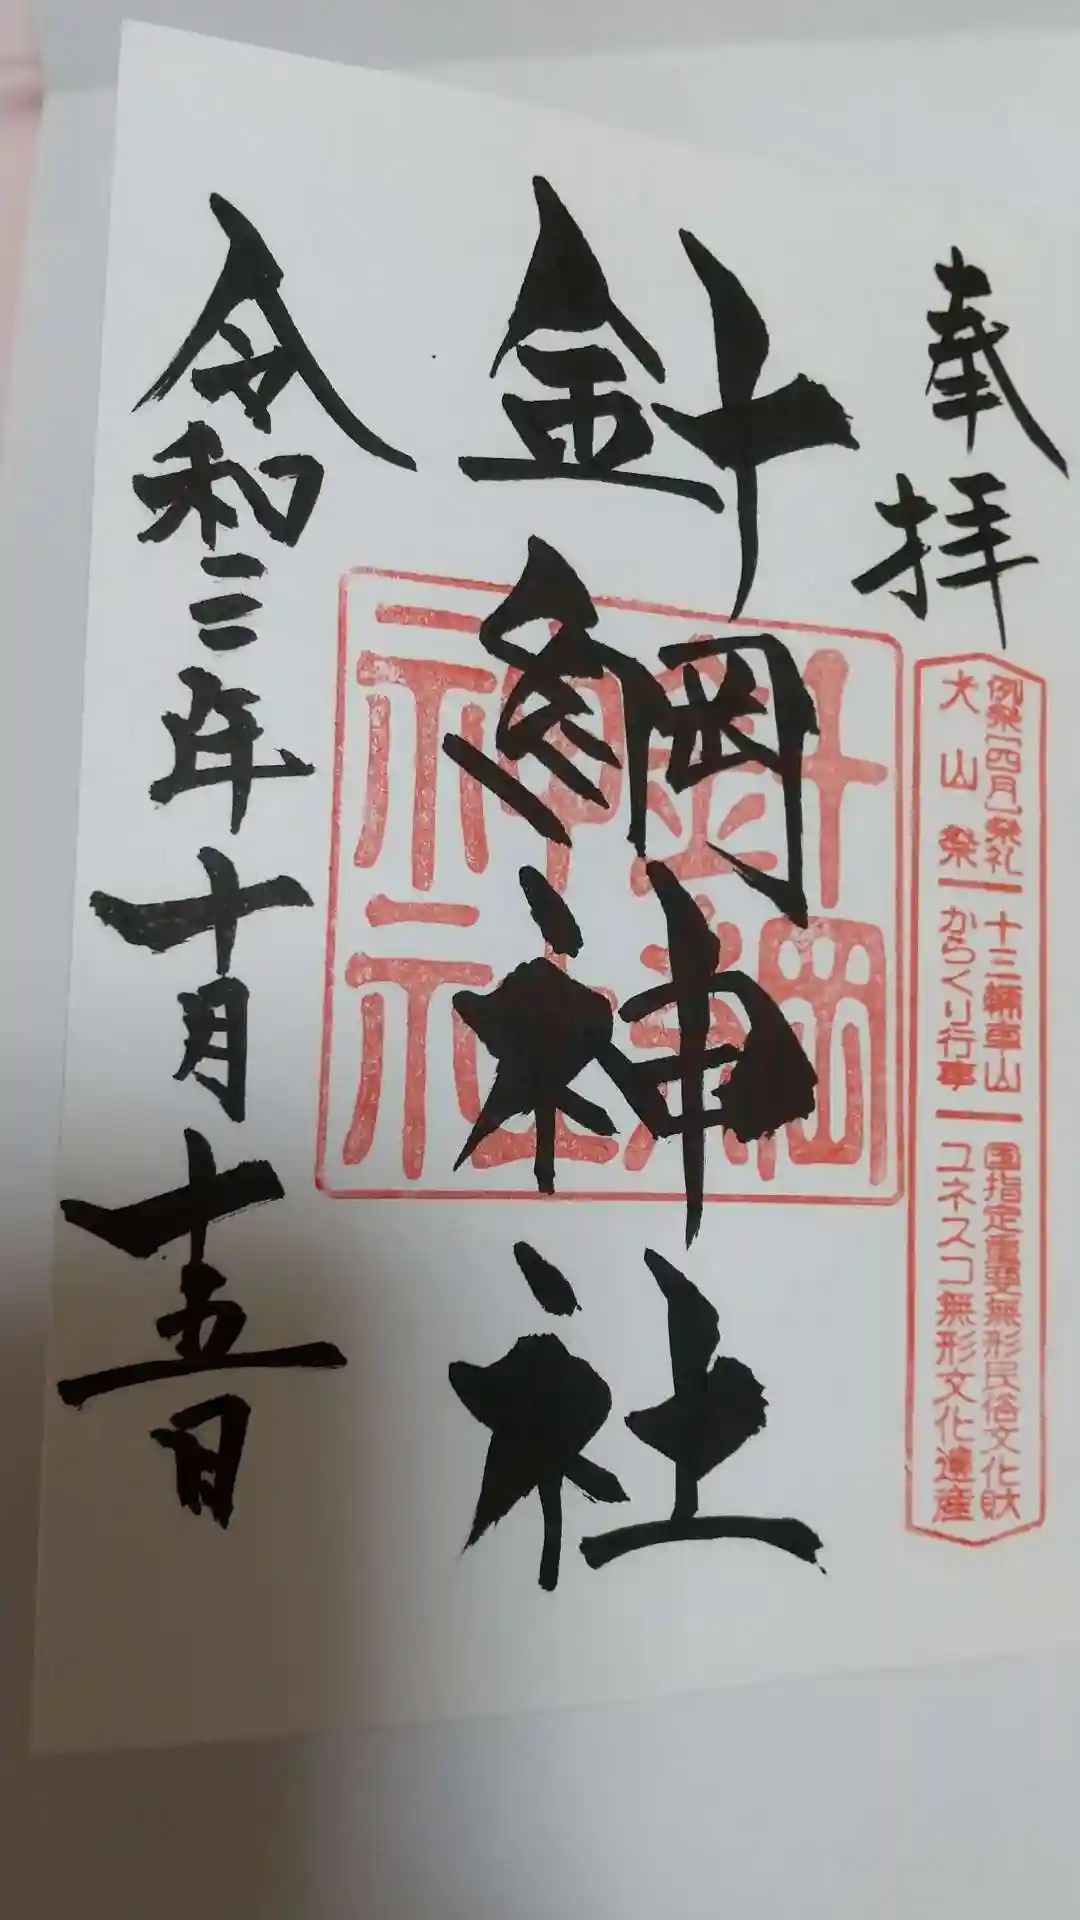 奉拝
例祭「四月」祭礼
犬山祭
十三輛車山
からくり行事
国指定重要無形民俗文化財
ユネスコ無形文化遺産
針綱神社
針綱
神社
令和三年十月十五日